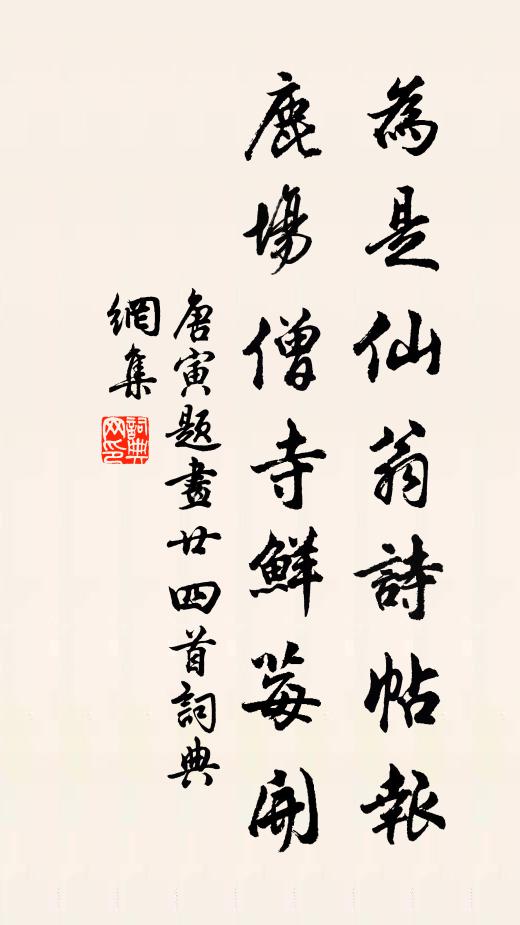 為是仙翁詩帖報
鹿場僧寺鮮莓開
唐寅題畫廿四首詞典
網集
詞典
网印